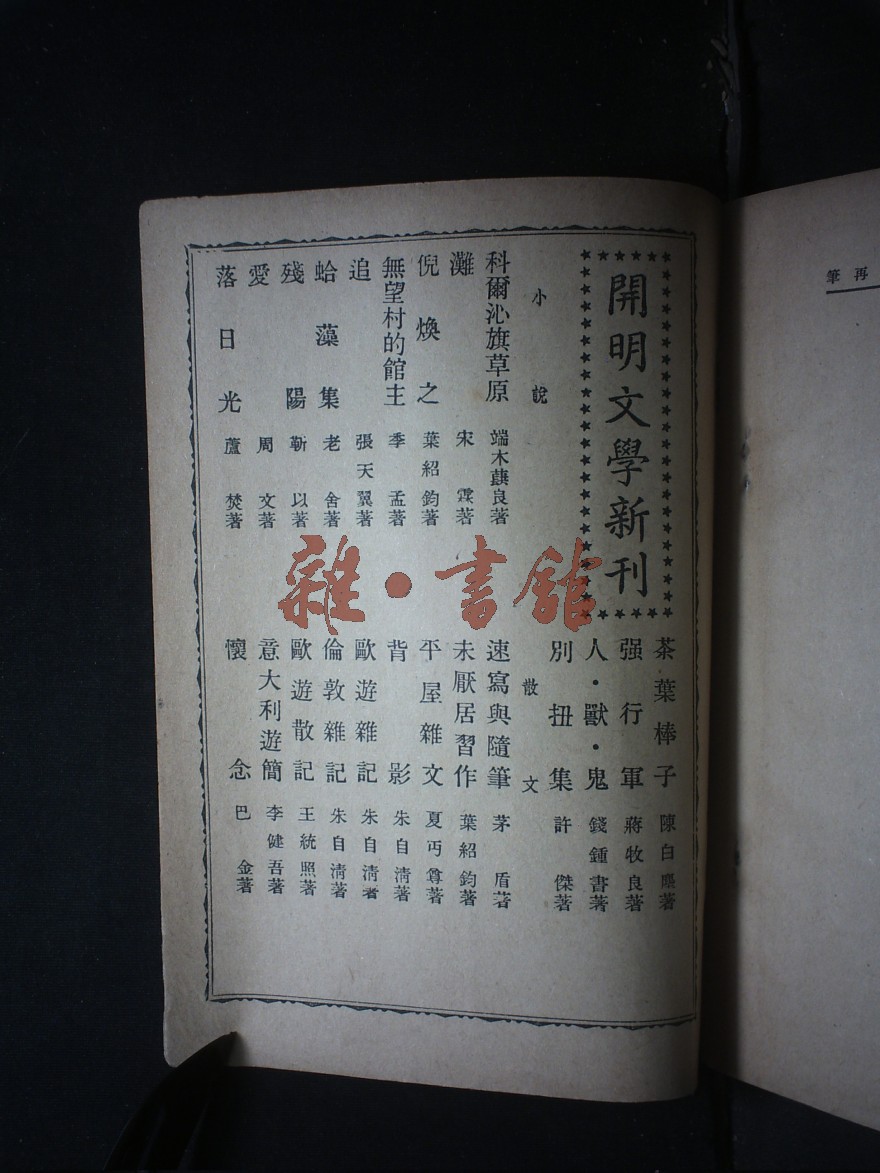 開明文學新刊
小說
科爾沁旗草原 端木蕻良著
灘 宋霖著
倪煥之 葉紹鈞著
無望村的館主 季孟著
追 張天翼著
蛤藻集 老舍著
殘陽 靳以著
愛 周文著
落日光 蘆焚著
茶葉棒子 陳白塵著
强行軍 蔣牧良著
人·獸·鬼 錢鍾書著
別扭集 許傑著
散文
速寫與隨筆 茅盾著
未厭居習作 葉紹鈞著
平屋雜文 夏丏尊著
背影 朱自清著
歐遊雜記 朱自清著
倫敦雜記 朱自清著
歐遊散記 王統照著
意大利遊簡 李健吾著
懷念 巴金著
雜·書館
再筆